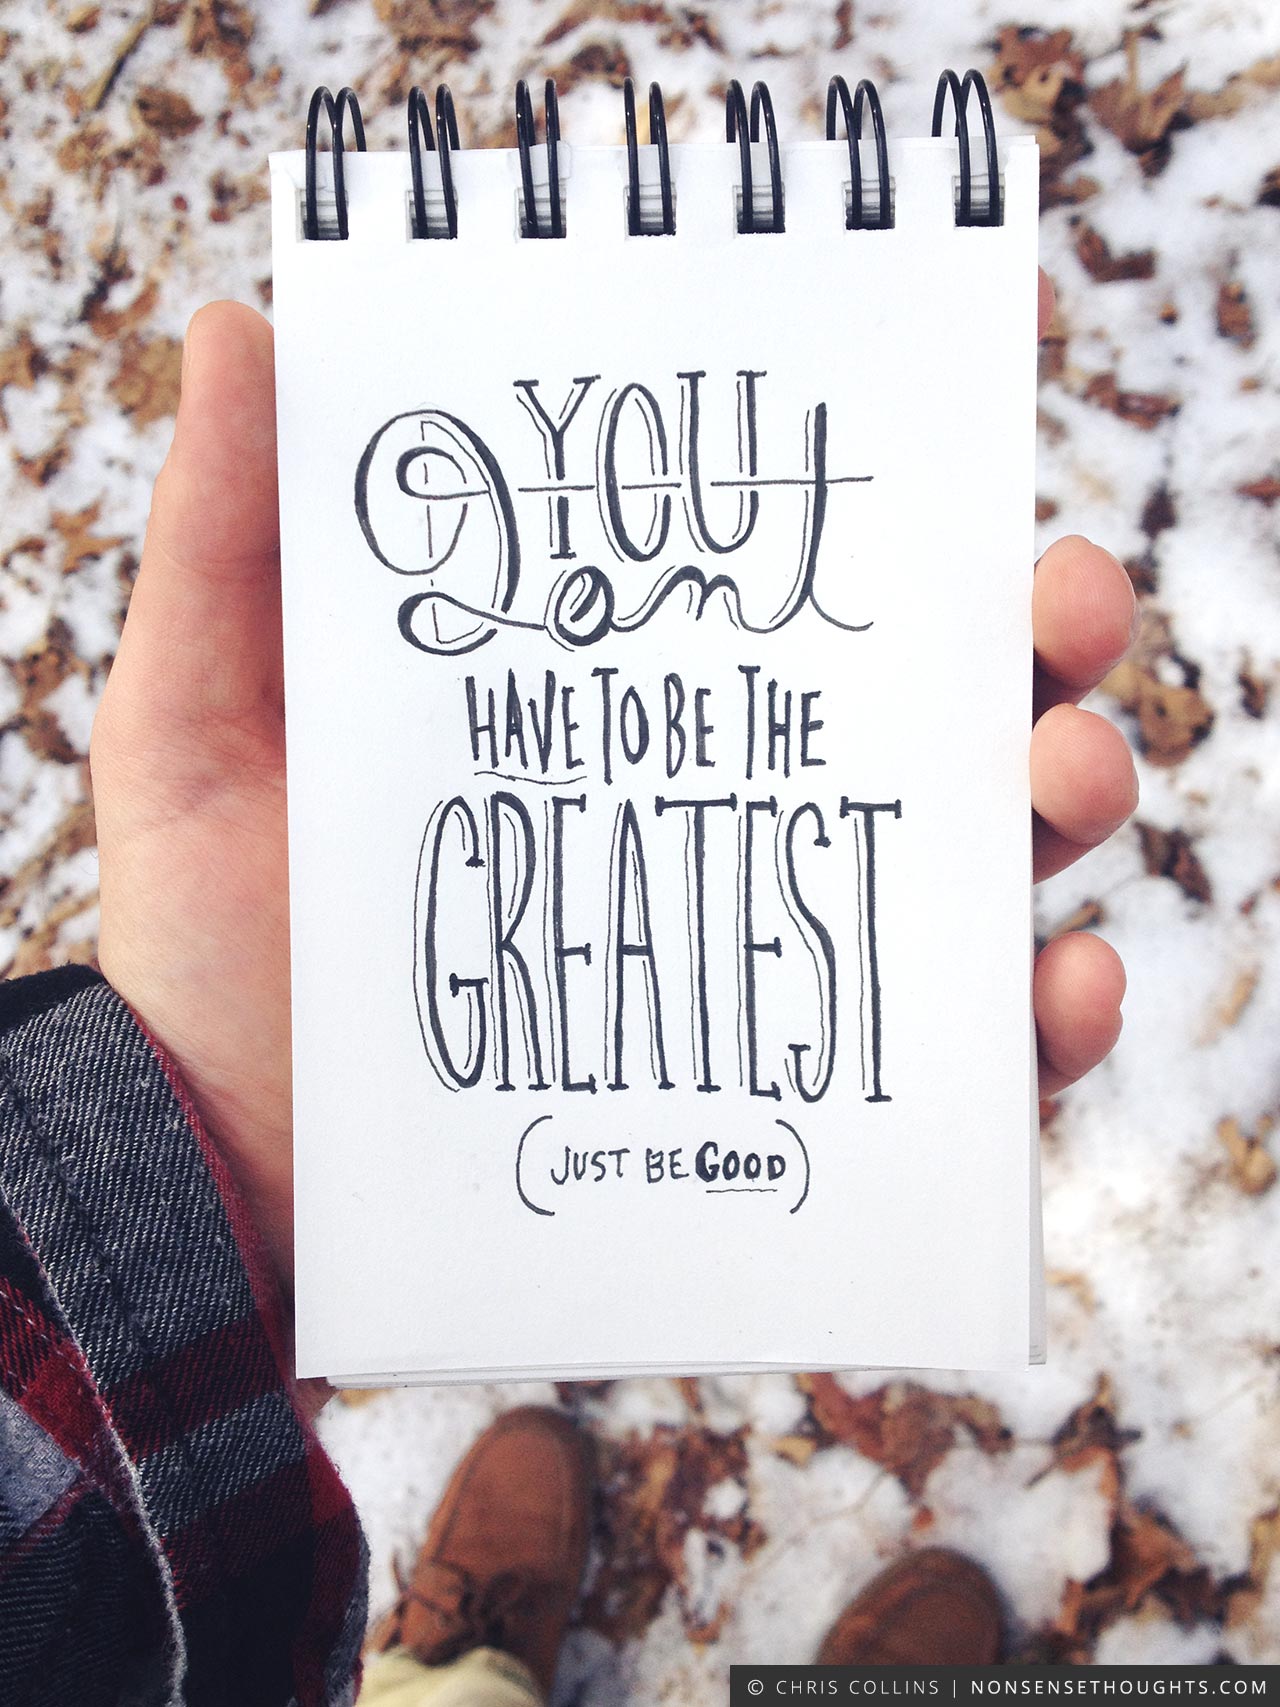 YOU
Dont
HAVE TO BE THE
GREATEST
(JUST BE GOOD)
© CHRIS COLLINS | NONSENSETHOUGHTS.COM